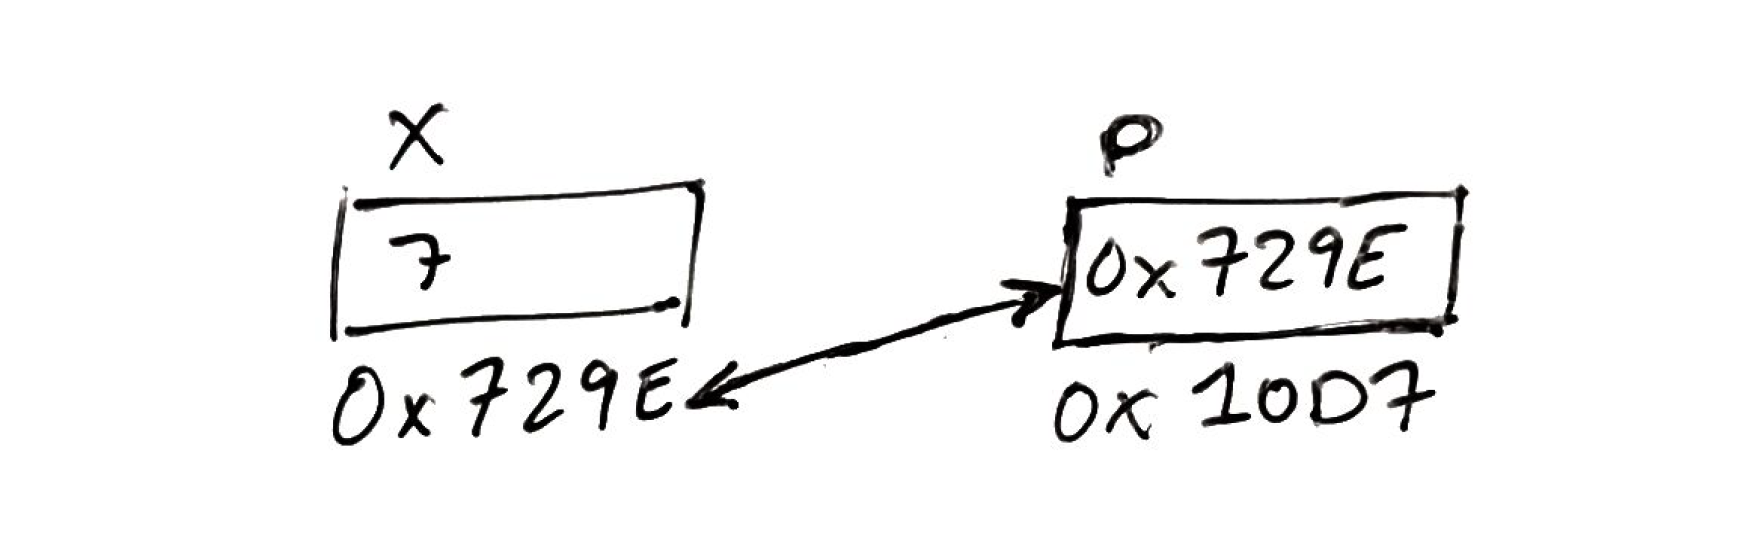 X
P
7
0x729E
0x729E
0x10D7